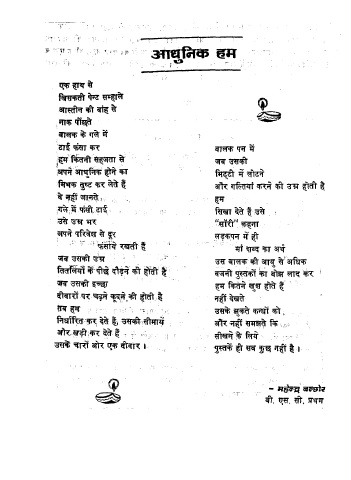 आधुनिक हम
एक हाथ से
खिसकती पेन्ट सम्हाले
आस्तीन की बांह से
नाक पौंछते
बालक के गले में
टाई फंसा कर
हम कितनी सहजता से
अपने आधुनिक होने का
मिथक तुष्ट कर लेते हैं
ये नहीं जानते
गले में फंसी टाई
उसे उम्र भर
अपने परिवेश से दूर
फंसाये रखती हैं
जब उसकी उम्र
तितलियों के पीछे दौड़ने की होती है
जब उसकी इच्छा
दीवारों पर चढ़ने कूदने की होती है
तब हम
निर्धारित कर देते हैं, उसकी सीमायें
और खड़ी कर देते हैं
उसके चारों ओर एक दीवार ।
बालक पन में
जब उसकी
मिट्टी में लोटने
और गल्तियां करने की उम्र होती है
हम
सिखा देते हैं उसे
"सॉरी" कहना
लड़कपन में ही
मां शब्द का अर्थ
उस बालक की आयु से अधिक
वजनी पुस्तकों का बोझ लाद कर
हम कितने खुश होते हैं
नहीं देखते
उसके झुकते कन्धों को
और नहीं समझते कि
सीखने के लिये
पुस्तकें ही सब कुछ नहीं है ।
- महेन्द्र
बी. एस. सी. प्रथम